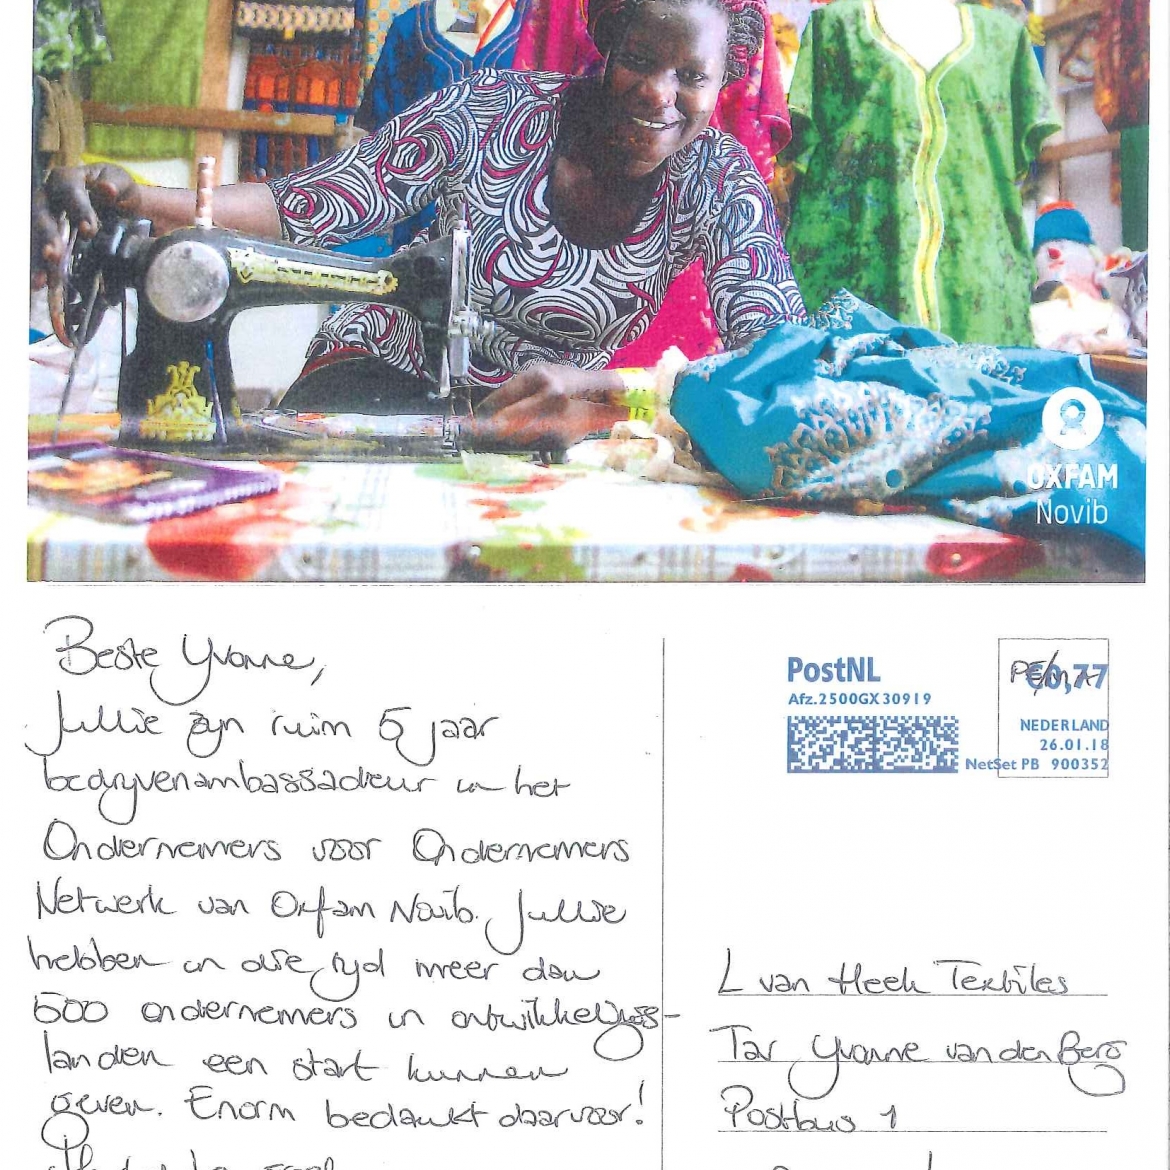 OXFAM
Novib
Beste Yvonne,
Jullie zijn ruim 5 jaar
bedrijvenambassadeur in het
Ondernemers voor Ondernemers
Netwerk van Oxfam Novib. Jullie
hebben in die tijd meer dan
500 ondernemers in ontwikkelings-
landen een start kunnen
geven. Enorm bedankt daarvoor!
PostNL
Afz.2500GX30919
€0,77
NEDERLAND
26.01.18
NetSet PB 900352
L van Heek Textiles
Tav Yvonne van den Berg
Postbus 1